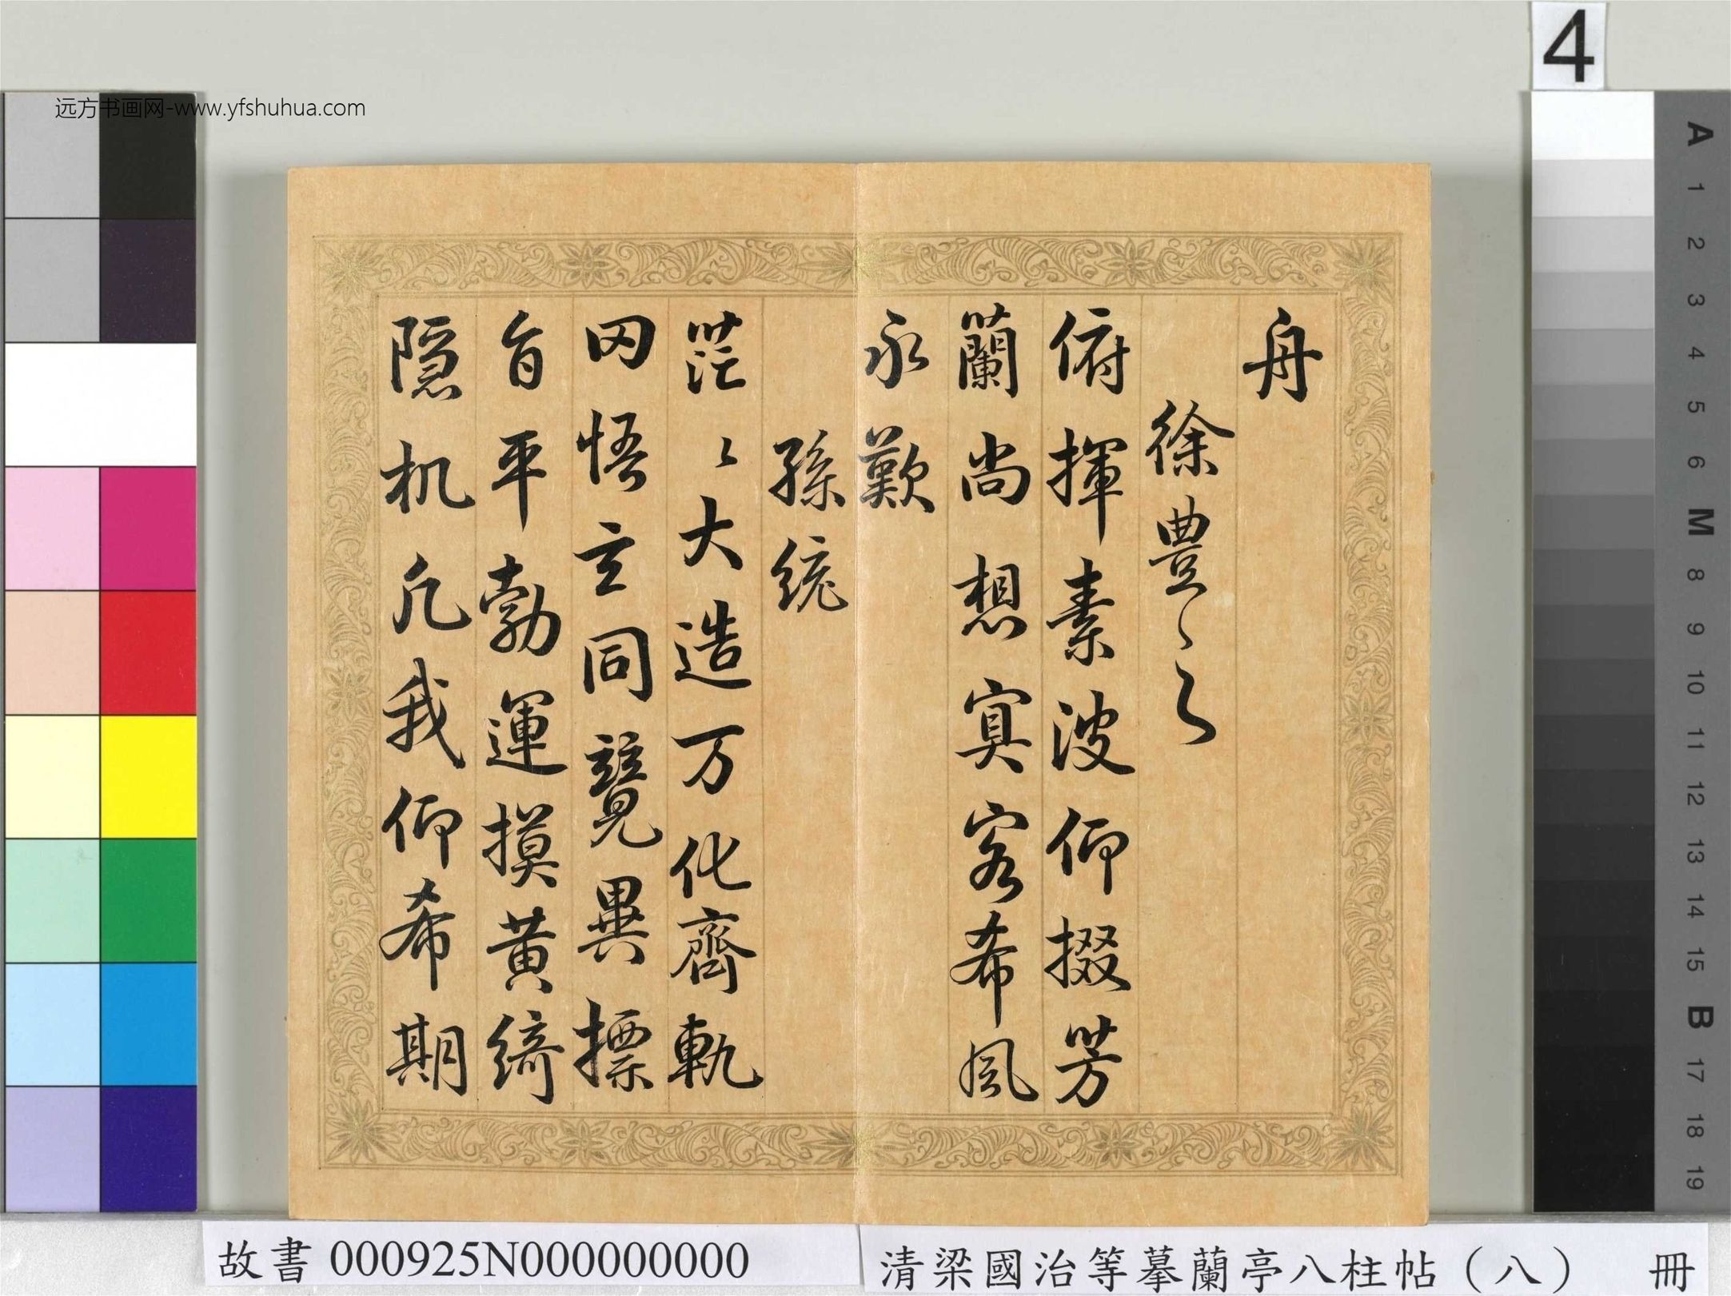 4
远方书画网-www.yfshuhua.com
舟
徐豊〻之
俯揮素波仰掇芳
蘭尚想寘客希風
永歎
孫統
茫〻大造万化齊軌
罔悟玄同競異摽
旨平勃運摸黄綺
隠机凢我仰希期
A
1
2
3
4
5
6
M
8
9
10
11
12
13
14
15
B
17
18
19
故書 000925N000000000
清梁國治等摹蘭亭八柱帖（八） 冊